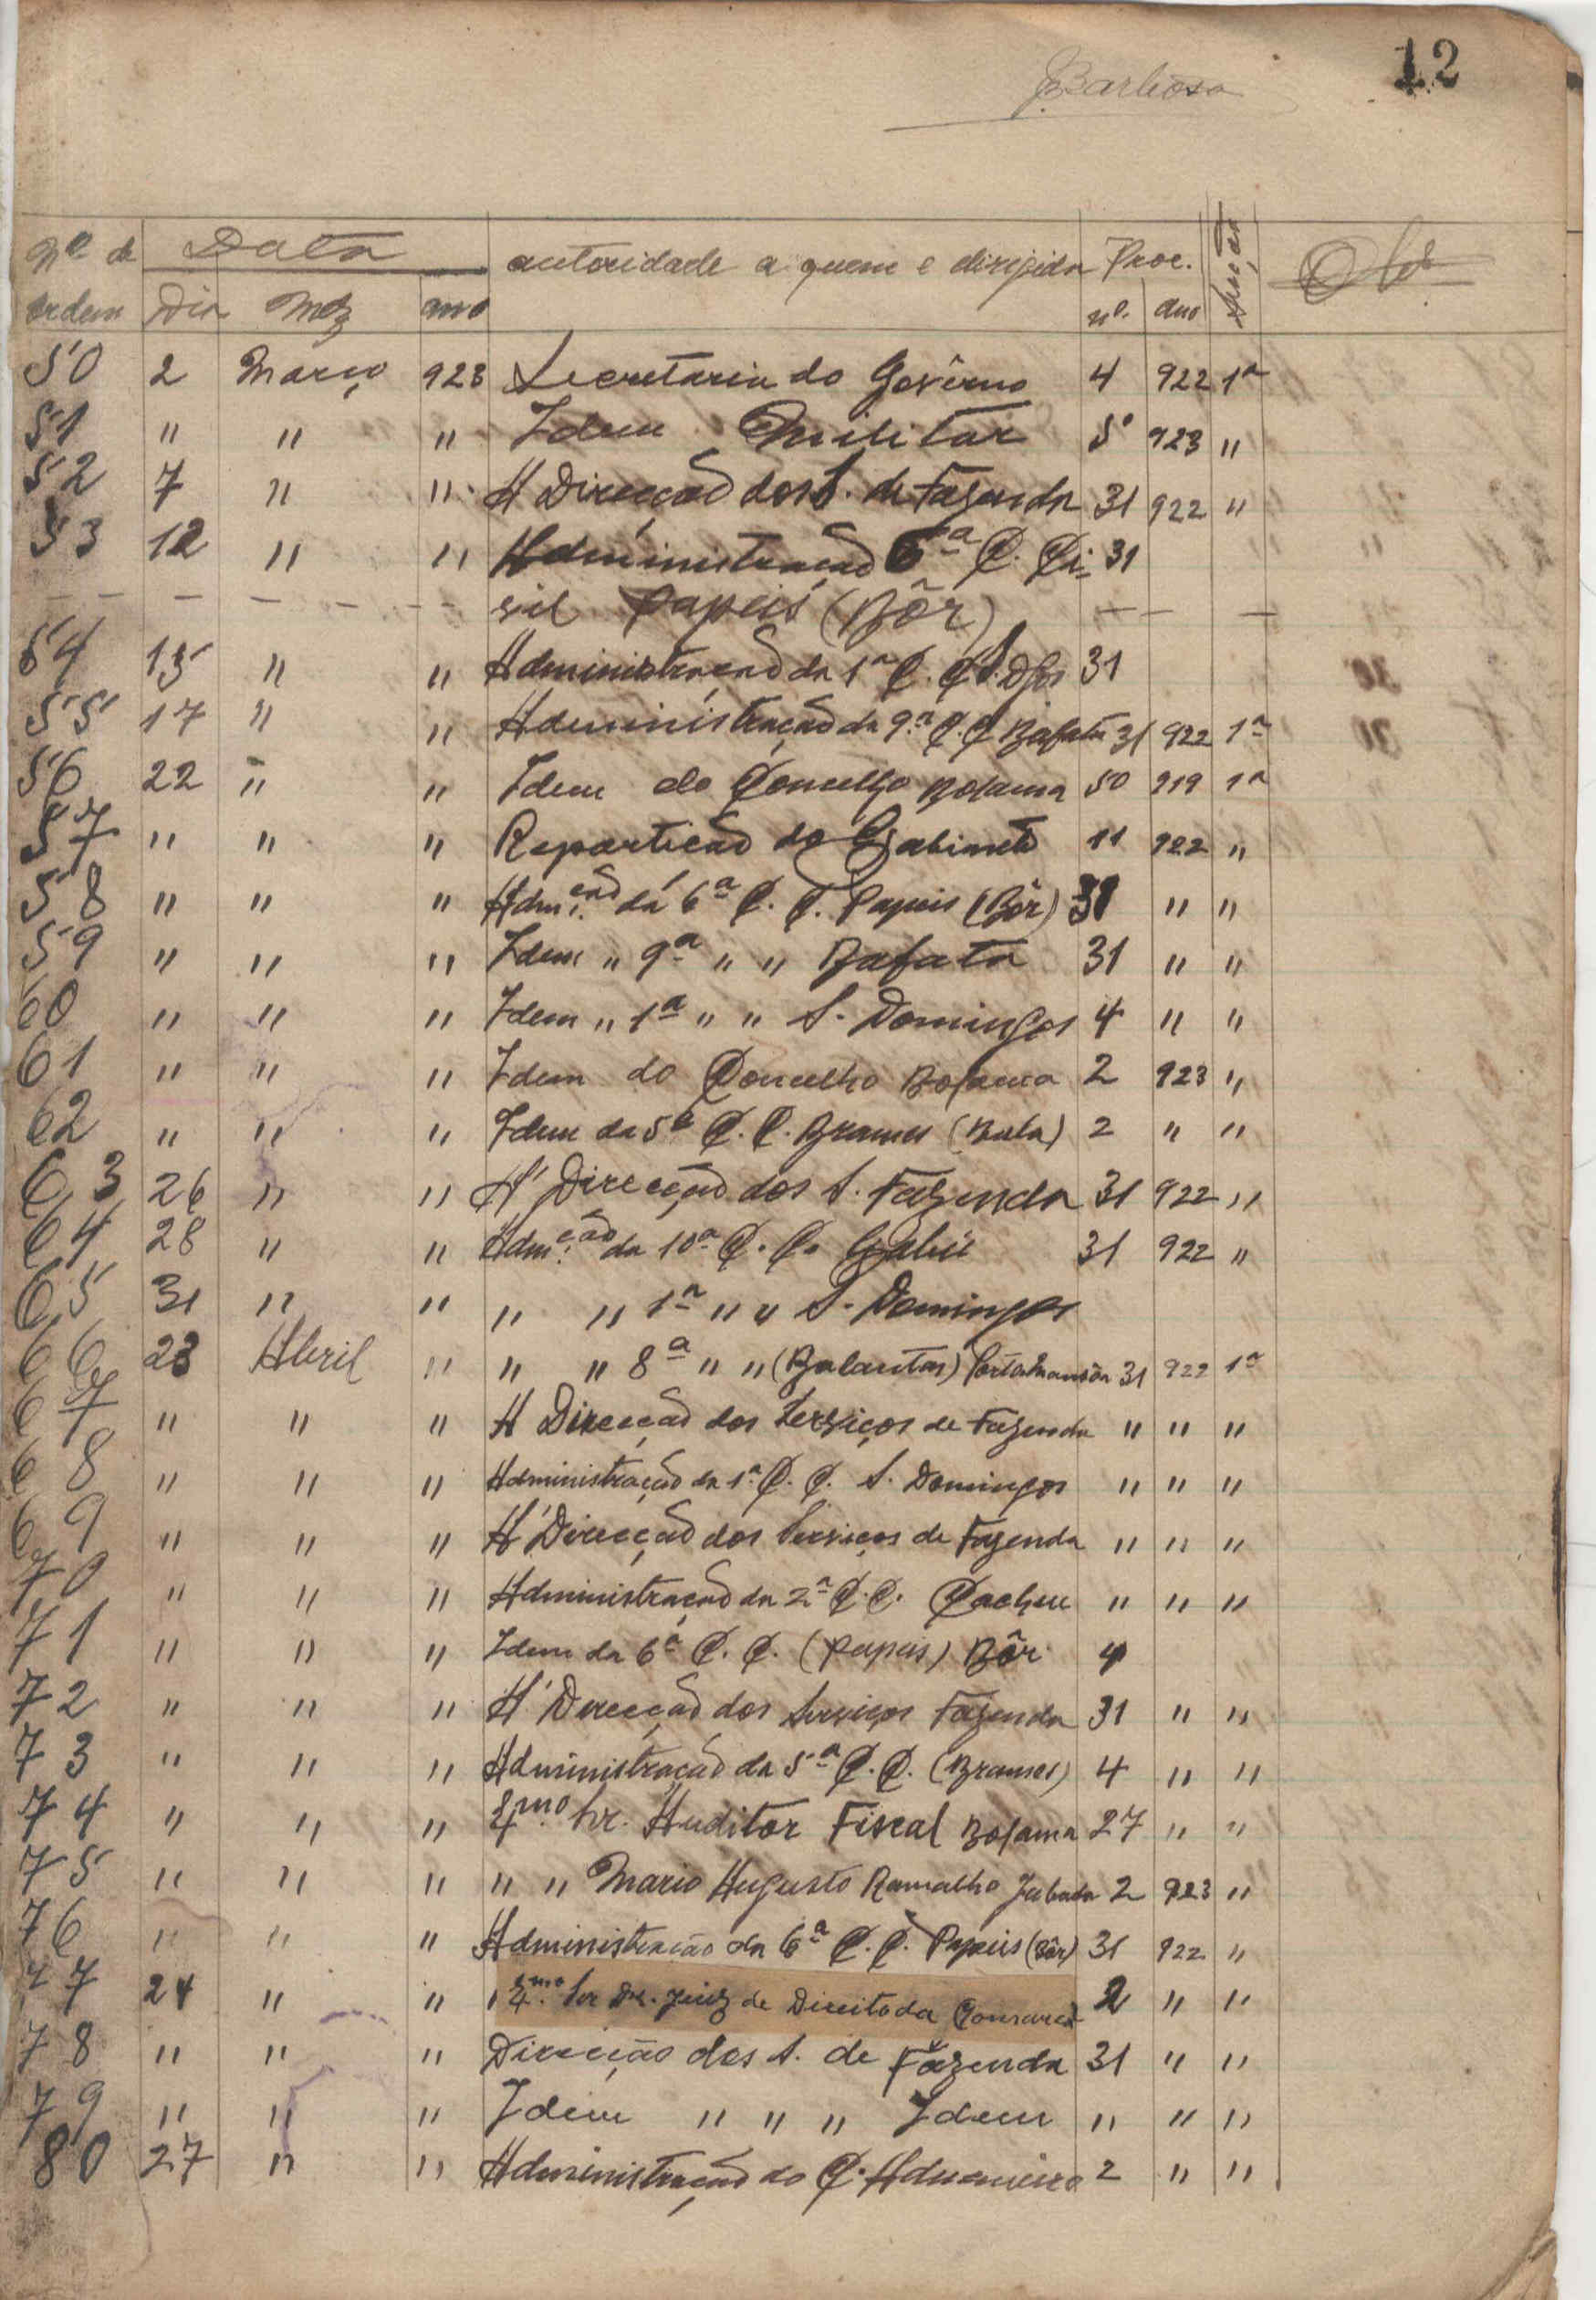 12
Barbosa
Nº de Data autoridade a quem e dirigida Proc. Obs
ordem Dia Mez ano nº. ano
50 2 Março 923 Secretaria do Govêrno 4 922 1ª
51 " " " Idem Militar 5 923 "
52 7 " " A Direcção dos S. de Fazenda 31 922 "
53 12 " " Administração 6ª C. Ci- 31
— — — — — — - vil Papeis (Bôr) — — —
54 13 " " Administração da 1ª C. C. S. Dgos 31
55 17 " " Administração da 9ª C. C Bafata 31 922 1ª
56 22 " " Idem do Concelho Bolama 50 919 1ª
57 " " " Repartição do Gabinete 11 922 "
58 " " " Adm.ção da 6ª C. C. Papeis (Bôr) 31 " "
59 " " " Idem " 9ª " " Bafata 31 " "
60 " " " Idem " 1ª " " S. Domingos 4 " "
61 " " " Idem do Concelho Bolama 2 923 "
62 " " " Idem da 5ª C. C. Brames (Bula) 2 " "
63 26 " " A' Direcção dos S. Fazenda 31 922 "
64 28 " " Adm.ção da 10ª C. C. Gabú 31 922 "
65 31 " " " " 1ª " " S. Domingos
66 23 Abril " " " 8ª " " (Balantas) 31 922 1ª
67 " " " A Direcção dos Serviços de Fazenda " " "
68 " " " Administração da 1ª C. C. S. Domingos " " "
69 " " " A' Direcção dos Serviços de Fazenda " " "
70 " " " Administração da 2ª C. C. Cacheu " " "
71 " " " Idem da 6ª C. C. (Papeis) Bôr 4
72 " " " A' Direcção dos Serviços Fazenda 31 " "
73 " " " Administração da 5ª C. C. (Brames) 4 " "
74 " " " Exmo. Sr. Auditor Fiscal Bolama 27 " "
75 " " " " " Mario Augusto Ramalho 2 923 "
76 " " " Administração da 6ª C. C. Papeis (Bôr) 31 922 "
77 24 " " Exmo. Sr Dr. Juiz de Direito da Comarca 2 " "
78 " " " Direcção dos S. de Fazenda 31 " "
79 " " " Idem " " " Idem " " "
80 27 " " Administração do C. Aduaneiro 2 " "